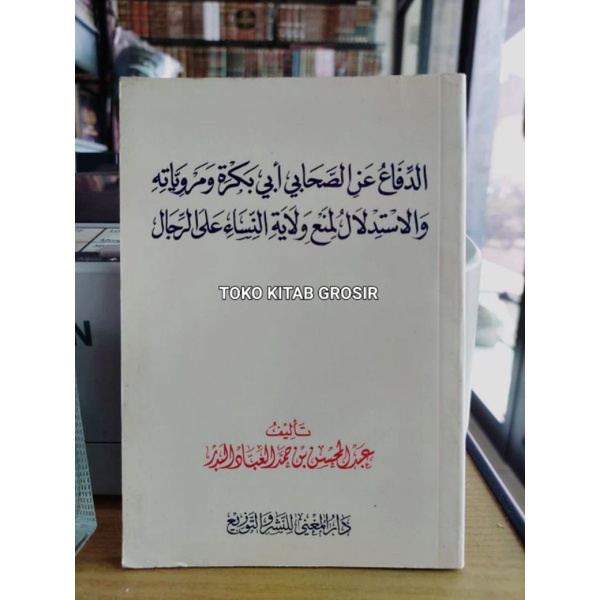 الدِّفَاعُ عَنِ الصَّحَابِي أَبِي بَكْرَةَ وَمَرْوِيَّاتِهِ
وَالاسْتِدْلَالُ لِمَنْعِ وِلَايَةِ النِّسَاءِ عَلَى الرِّجَالِ
TOKO KITAB GROSIR
تَأليفُ
عَبد المحسن بن حمد العباد البدر
دَارُ المُغني للنَشرِ وَالتَوزيع